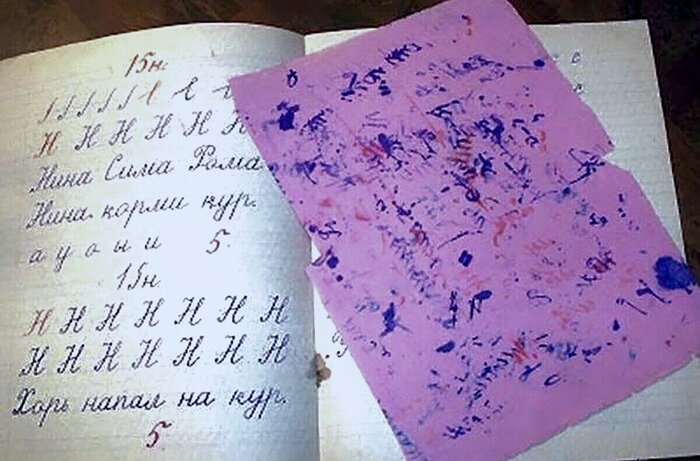 15 н.
Н Н Н Н Н Н
Нина Сима Рома
Нина корми кур.
а у о ы и 5.
15 н.
Н Н Н Н Н Н Н
Н Н Н Н Н Н Н
Хорь напал на кур.
5.